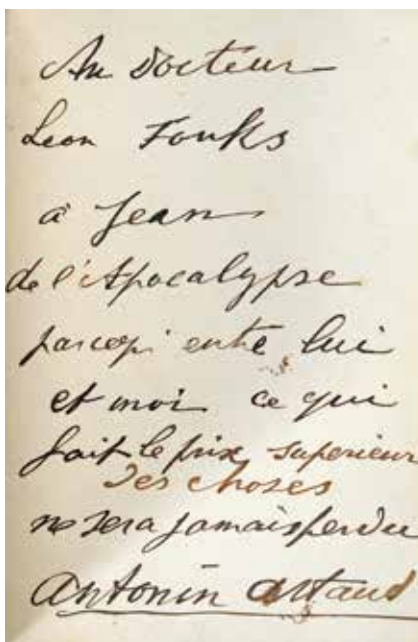 Au Docteur
Leon Fouks
à Jean
de l'Apocalypse
parcequ' entre lui
et moi ce qui
fait le prix superieur
des choses
ne sera jamais perdu
Antonin Artaud